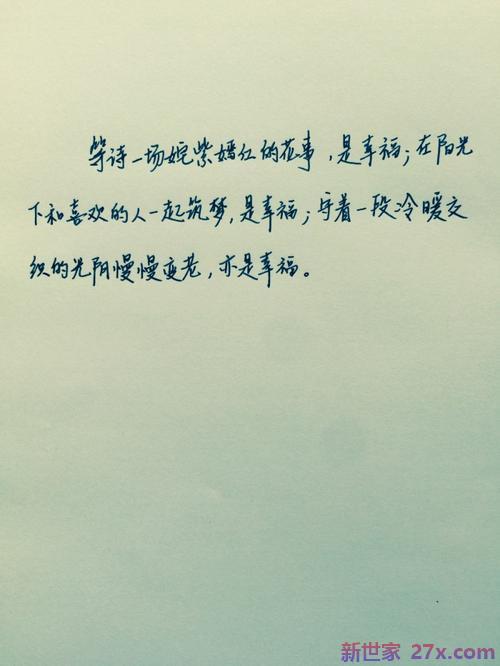 等诗一场姹紫嫣红的花事，是幸福；在阳光
下和喜欢的人一起筑梦，是幸福；守着一段冷暖交
织的光阴慢慢变老，亦是幸福。
新世家 27x.com